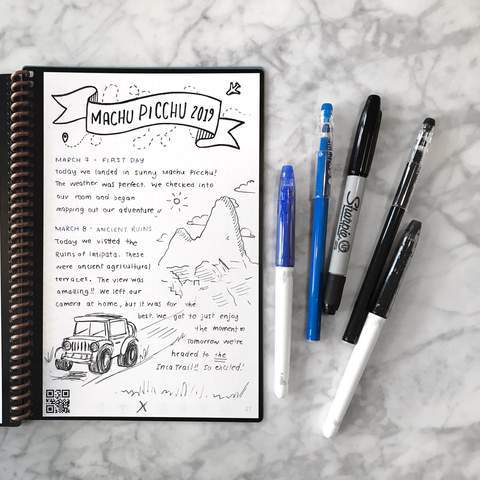 MACHU PICCHU 2019
MARCH 7 - FIRST DAY
Today we landed in sunny Machu Picchu!
The weather was perfect. We checked into
our room and began
mapping out our adventure
MARCH 8 - ANCIENT RUINS
Today we visited the
Ruins of Intipata. These
were ancient agricultural
terraces. The view was
amazing!! We left our
camera at home, but it was for the
best. We got to just enjoy
the moment.
Tomorrow we're
headed to the
Inca Trail!! So excited!
X
Sharpie